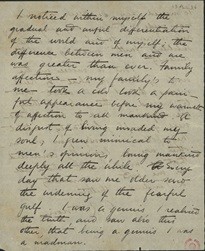 I noticed within myself the
gradual and awful differentiation
of the world and of myself; the
difference between men and me
was greater than ever. Family
affections – my family's to
me – took a cold took a pain
before my
of affection to all mankind. A
disgust of living invaded my
soul. I grew inimical to
men's opinions, loving mankind
deeply all the while. Every
day that saw me older saw
the widening of the fearful
gulf. I was a genius, realized
the truth and saw also this
other that being a genius I was
a madman.